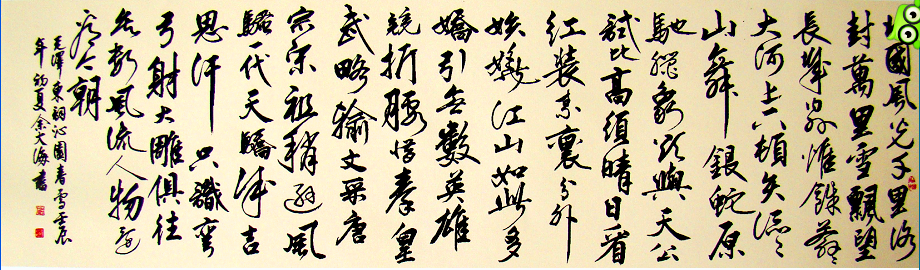 國風光千里冰
封萬里雪飄望
長城內外惟餘莽々
大河上下頓失滔々
山舞銀蛇原
馳蠟象欲與天公
試比高須晴日看
紅裝素裹分外
妖嬈江山如此多
嬌引無數英雄
競折腰惜秦皇
武略輸文采唐
宗宋祖稍遜風
騷一代天驕成吉
思汗只識彎
弓射大雕俱往
矣數風流人物還
看今朝
毛澤東詞沁園春雪壬辰
年初夏余大海書